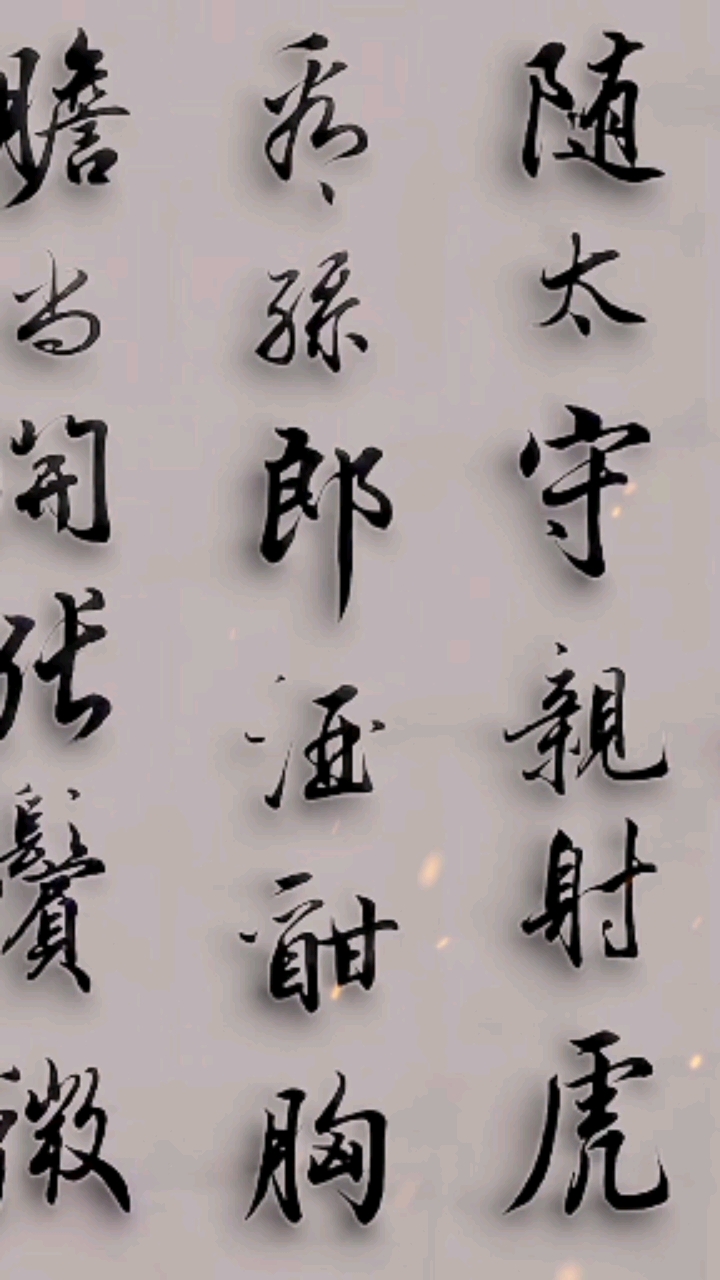 随太守親射虎
看孫郎酒酣胸
膽尚開張鬢微